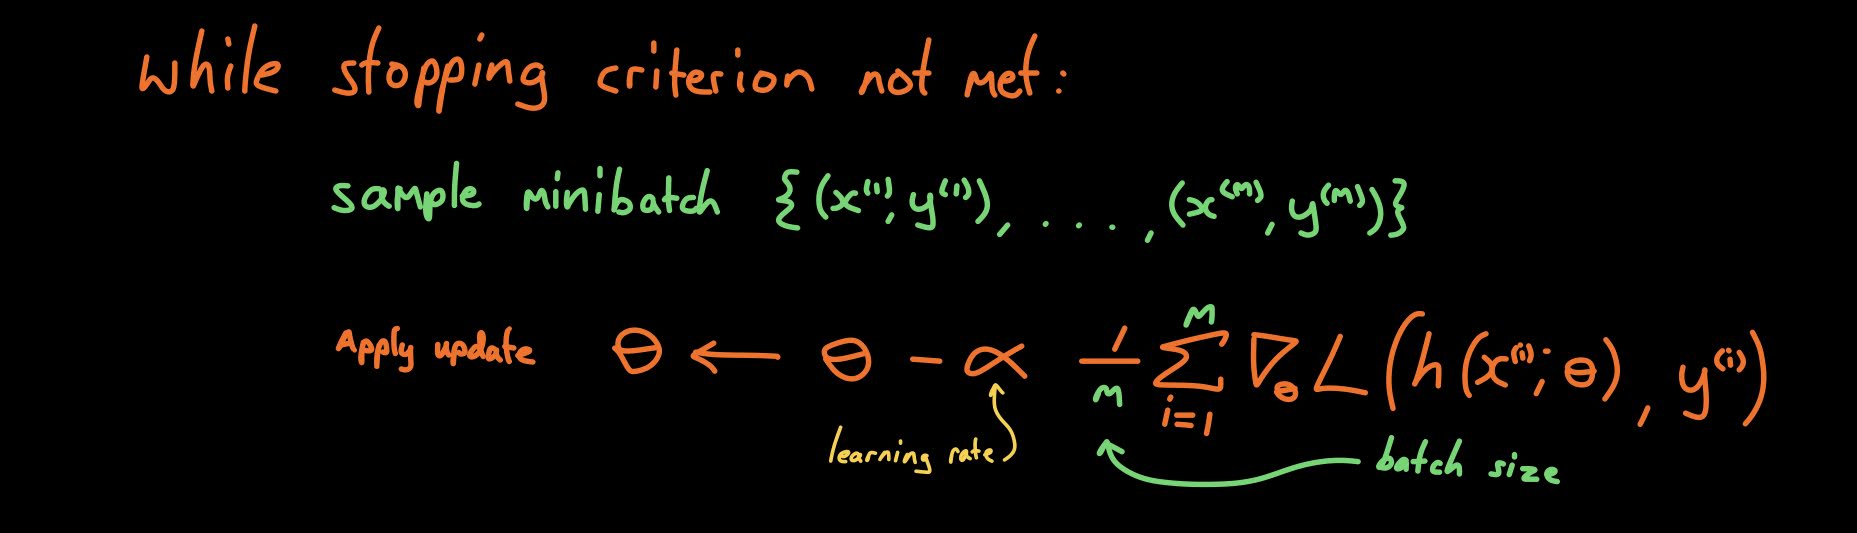 while stopping criterion not met:
sample minibatch {(x⁽¹⁾, y⁽¹⁾), . . . , (x⁽ᵐ⁾, y⁽ᵐ⁾)}
Apply update θ ← θ - α 1/m ∑ᵢ₌₁ᵐ ∇_θ L(h(x⁽ⁱ⁾; θ), y⁽ⁱ⁾)
learning rate
batch size